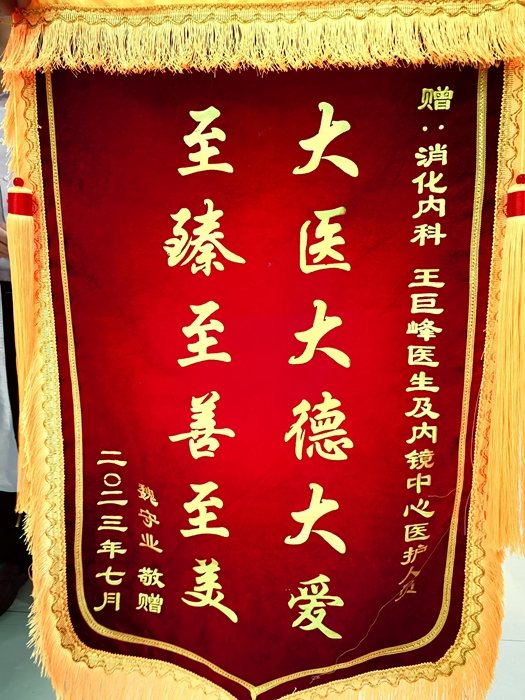 赠：消化内科 王巨峰医生及内镜中心医护人员
大医大德大爱
至臻至善至美
魏守业 敬赠
二〇二三年七月